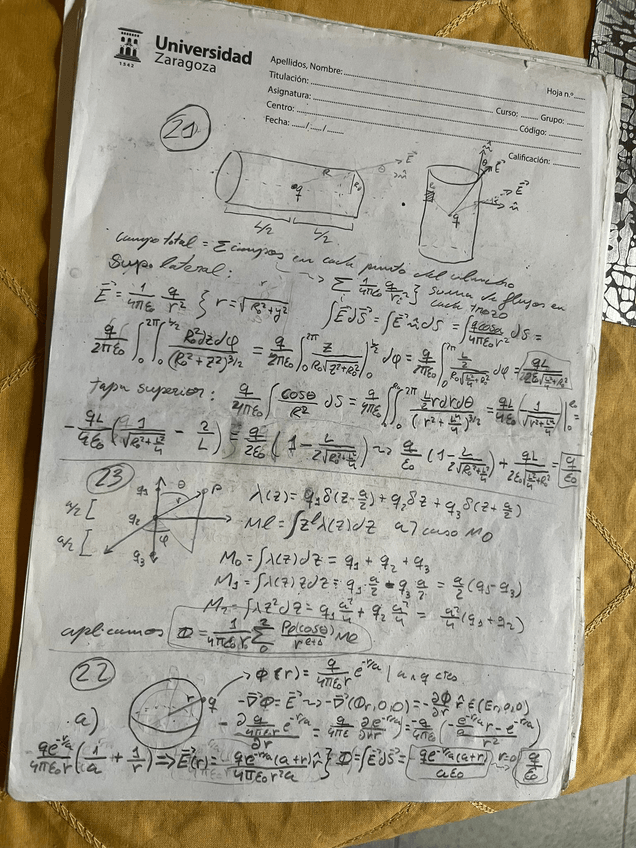 Universidad
Zaragoza
1542
Apellidos, Nombre:
Hoja n.º
Titulación:
Asignatura:
Curso: Grupo:
Centro:
Código:
Fecha: ..../..../....
Calificación:
21
R E⃗
θ n̂
q
L/2 L/2
n̂
θ E⃗
E⃗
n̂
q
campo total = Σ campos en cada punto del cilindro
Sup. lateral: → Σ 1/4πε₀ q/rᵢ² } suma de flujos en cada trozo
E⃗ = 1/4πε₀ q/r² } r = √(R₀²+y²) ∫E⃗dS⃗ = ∫E⃗·n̂dS = ∫ q cosα/4πε₀r² dS =
q/2πε₀ ∫₀^2π ∫₀^L/2 R₀²dzdφ/(R₀²+z²)^3/2 = q/2πε₀ ∫₀^2π z/R₀√(z²+R₀²) |₀^L/2 dφ = q/2πε₀ ∫₀^2π L/2/R₀√(L²/4+R₀²) dφ = qL/2ε₀√(L²/4+R₀²)
tapa superior: q/4πε₀ ∫ cosθ/R² dS = q/4πε₀ ∫₀^2π ∫₀^R₀ L/2 rdrdθ/(r²+L²/4)^3/2 = qL/4ε₀ (1/√(r²+L²/4)) |₀ =
-qL/4ε₀ (1/√(R₀²+L²/4) - 2/L) = q/2ε₀ (1 - L/2√(R₀²+L²/4)) ⇝ q/ε₀ (1 - L/2√(R₀²+L²/4)) + qL/2ε₀√(L²/4+R₀²) = q/ε₀
23
q₁ θ P
a/2 [ r
q₂
a/2 [ φ
q₃
λ(z) = q₁δ(z-a/2) + q₂δz + q₃δ(z+a/2)
Mℓ = ∫z^ℓ λ(z)dz a) caso M₀
M₀ = ∫λ(z)dz = q₁ + q₂ + q₃
M₁ = ∫λ(z)zdz = q₁ a/2 - q₃ a/2 = a/2 (q₁-q₃)
M₂ = ∫λz²dz = q₁ a²/4 + q₂ a²/4 = a²/4 (q₁+q₂)
aplicamos Φ = 1/4πε₀ Σ₀² Pℓ(cosθ)/r^ℓ+1 Mℓ
22
r q
Φ(r) = q/4πε₀r e^-r/a | a y q ctes.
-∇⃗Φ = E⃗ ⇝ -∇⃗(Φr,0,0) = -∂Φ/∂r r̂ ∈ (Er,0,0)
a)
-∂ q/4πε₀r e^-r/a /∂r = q/4πε₀ ∂e^-r/a/∂r r = -q/4πε₀ (-e^-r/a/a r - e^-r/a / r²)
qe^-r/a/4πε₀r (1/a + 1/r) ⇒ E⃗(r) = qe^-r/a(a+r)r̂/4πε₀r²a } Φ = ∫E⃗dS⃗ = qe^-r/a(a+r)/aε₀ r=0 → q/ε₀